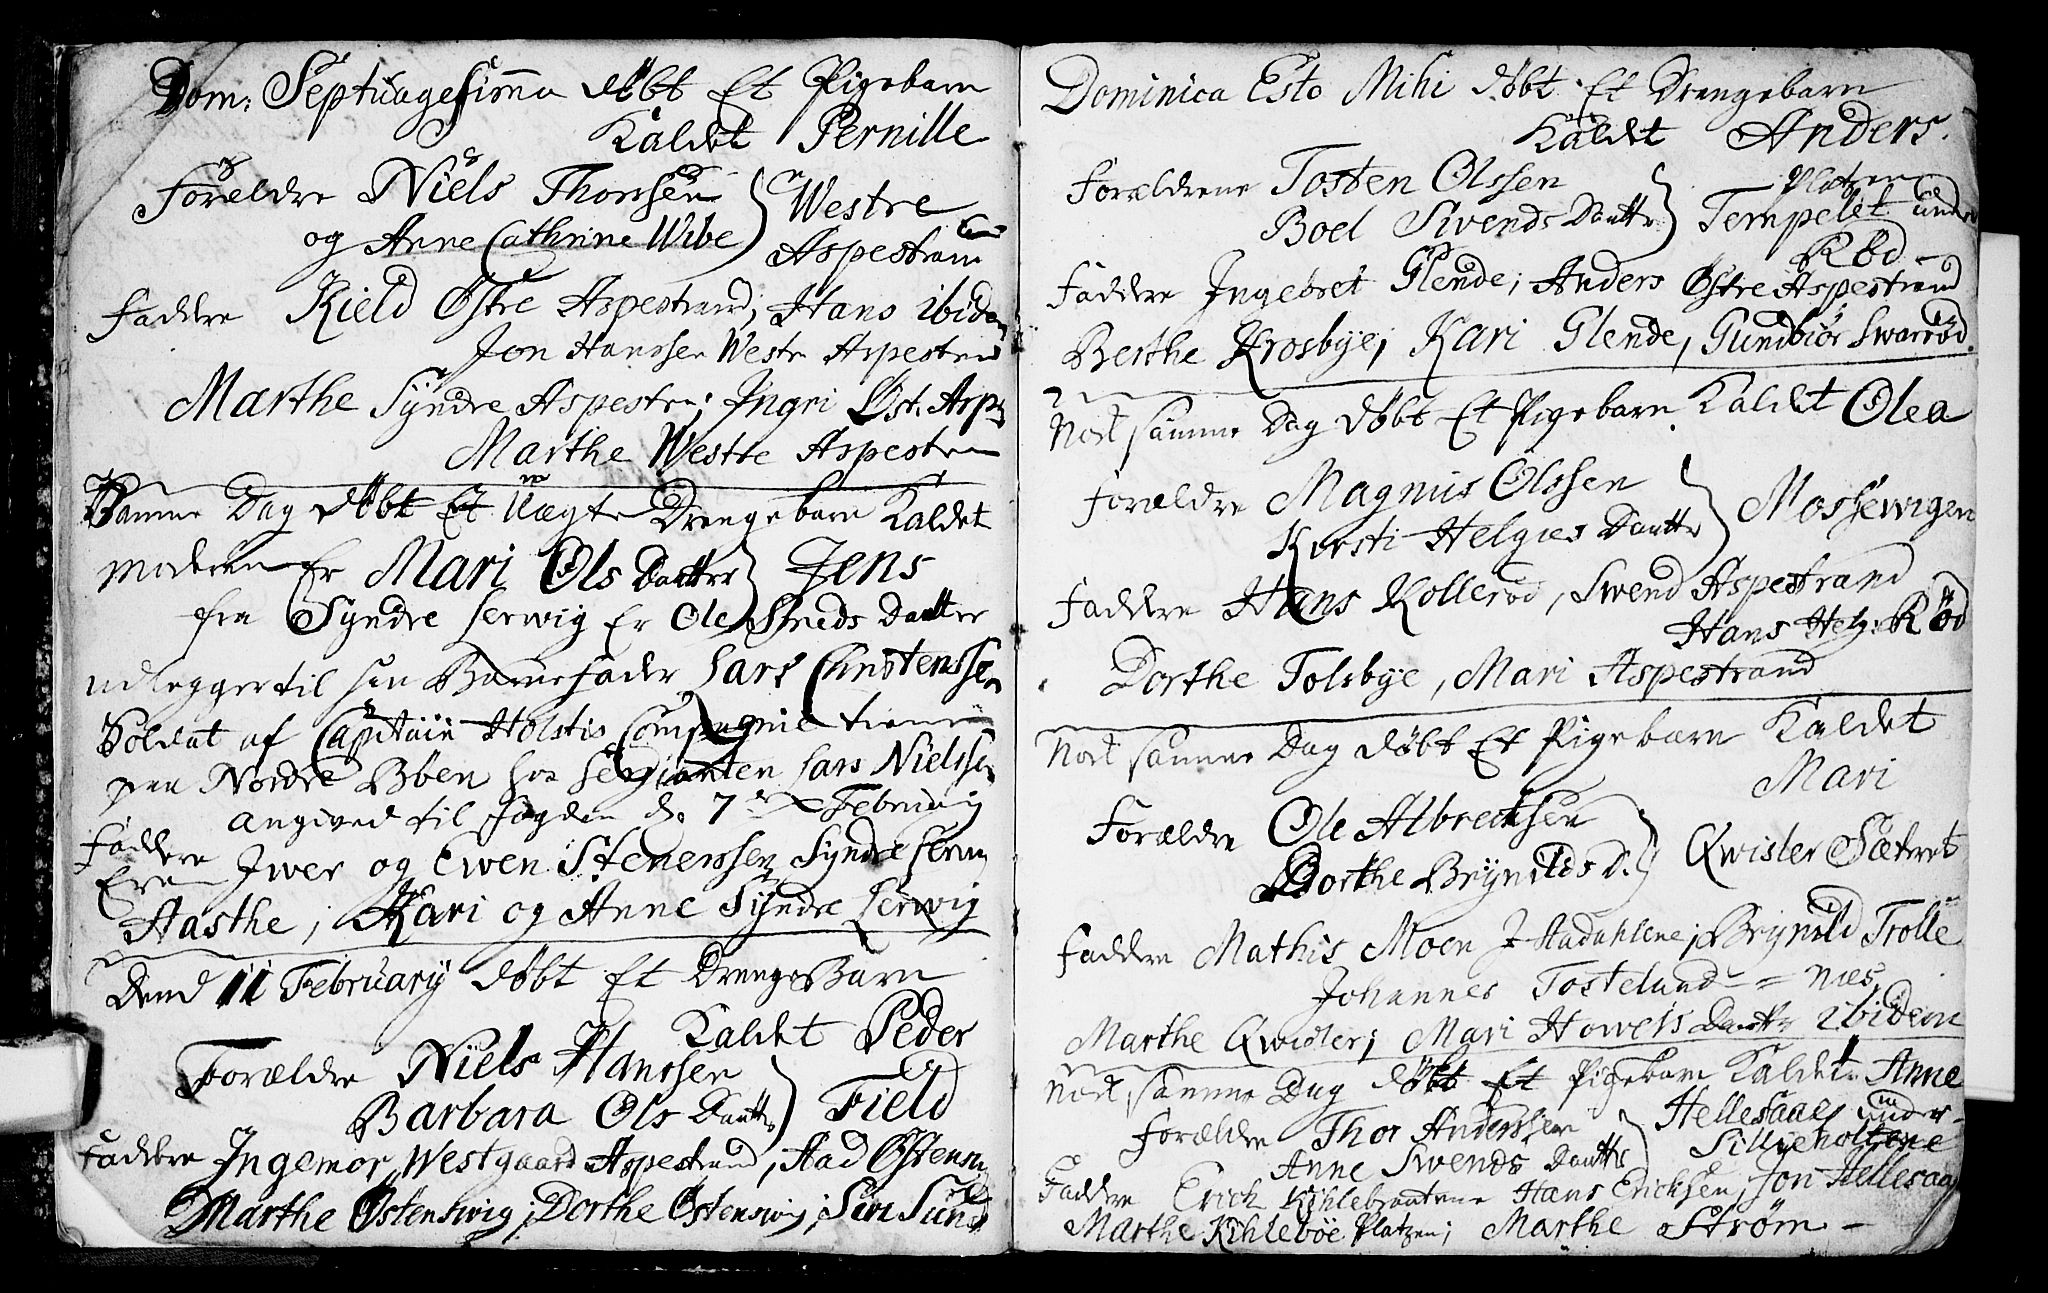 Dom: Septuagesima døbt Et Pigebarn
Kaldet Pernille
Forældre Niels Thorssen
og Anne Cathrine Wibe } Westre Aspestrand
Faddre Kield Østre Aspestrand; Hans ibidem
Jon Hanssen Westre Aspestrand
Marthe Syndre Aspestr:; Ingri Øst. Asp:
Marthe Westre Aspestran
Samme Dag døbt Et Uægte Drengebarn Kaldet
Moderen Er Mari Ols Daatter } Jens
fra Syndre Herwig Er Ole Smeds Daatter
udlegger til sin Barnefader Lars Christenssen
Soldat af Capitain Holstis Compagnie tiener
paa Nordre Bøen hos Sergianten Lars Nielssen
angived til fogden d. 7de February
Faddere Ere Iwer og Ewen Stenerssen Syndre Herwig
Aasthe, Kari og Anne Syndre Herwig
Dend 11 February døbt Et Drenge Barn
Kaldet Peder
Forældre Niels Hanssen
Barbara Ols Daatter } Field
Faddere Ingemor Westgaard Aspestrand, Aad Østenswig
Marthe Østenswig; Dorthe Østenswig; Siri Sund
Dominica Esto Mihi døbt Et Drengebarn
Kaldet Anders.
Forældrene Tosten Olssen
Boel Swends Daatter } Platzen Tempelet under Rød
Faddre Ingebret Glende; Anders Østre Aspestrand
Berthe Krosbye; Kari Glende, Gundbiør Swarrød.
Nok samme Dag døbt Et Pigebarn Kaldet Olea
Forældre Magnus Olssen
Kirsti Helgies Daatter } Mossewigen
Faddre Hans Kollerød, Swend Aspestrand
Hans Helg: Rød
Dorthe Tolsbye, Mari Aspestrand
Nok samme Dag døbt Et Pigebarn Kaldet
Mari
Forældre Ole Albrechtsen
Dorthe Brynilds D. } Qwisler Sætret
Faddre Mathis Moen I Aadahlene; Brynild Trolle
Johannes Tostelund - = næs,
Marthe Qwisler; Mari Howels Daatter ibidem
Nok samme Dag døbt Et Pigebarn Kaldet Anne
Forældre Thor Anderssen
Anne Swends Daatter } Hellesaae under Sillieholtene
Faddre Erich Kihlebraatene Hans Ericksen, Jon Hellesaa
Marthe Kihlebøe Platzen; Marthe Strøm -